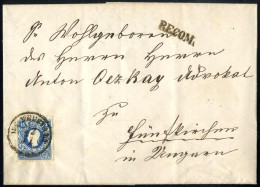 Sr Wohlgeboren
RECOM.
des Herrn Herrn
Anton Oezkay Advokat
zu
Fünfkirchen
in Ungarn